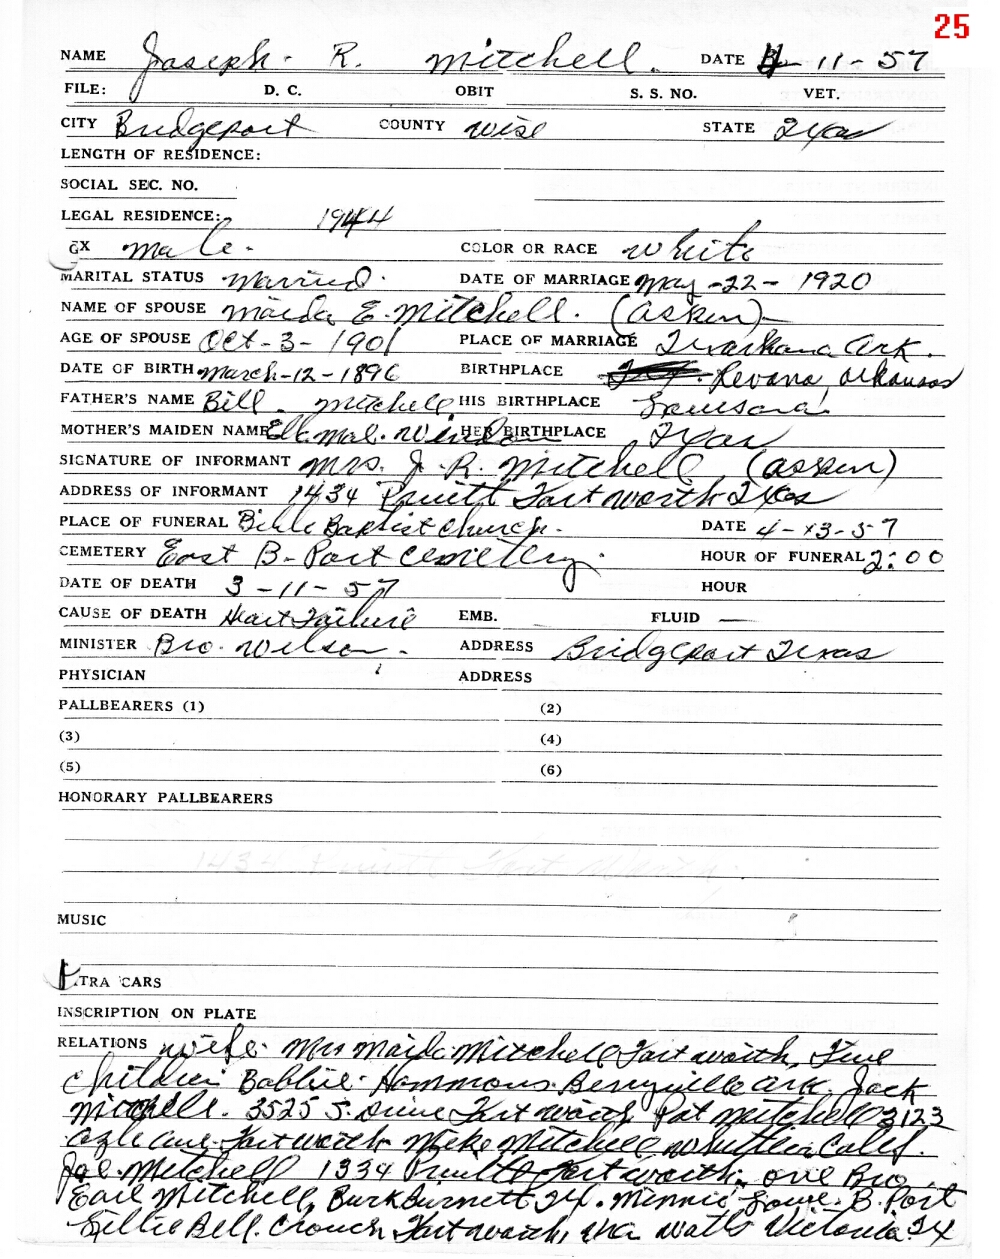 25
NAME Joseph R. Mitchell. DATE 11-57
FILE: D. C. OBIT S. S. NO. VET.
CITY Bridgeport COUNTY Wise STATE Texas
LENGTH OF RESIDENCE:
SOCIAL SEC. NO.
LEGAL RESIDENCE: 1944
EX Male. COLOR OR RACE White
MARITAL STATUS Married. DATE OF MARRIAGE May-22-1920
NAME OF SPOUSE Maida E. Mitchell. (Askew)
AGE OF SPOUSE Oct-3-1901 PLACE OF MARRIAGE Texarkana Ark.
DATE OF BIRTH March-12-1896 BIRTHPLACE Arkansas
FATHER'S NAME Bill Mitchell HIS BIRTHPLACE Louisana
MOTHER'S MAIDEN NAME HER BIRTHPLACE Texas
SIGNATURE OF INFORMANT Mrs. J. R. Mitchell (Askew)
ADDRESS OF INFORMANT 1434 Pruitt Fort Worth Texas
PLACE OF FUNERAL Bible Baptist Church. DATE 4-13-57
CEMETERY East B-Port Cemetery. HOUR OF FUNERAL 2:00
DATE OF DEATH 3-11-57 HOUR
CAUSE OF DEATH Heart Failure EMB. FLUID —
MINISTER Bro. Wilson. ADDRESS Bridgeport Texas
PHYSICIAN ADDRESS
PALLBEARERS (1) (2)
(3) (4)
(5) (6)
HONORARY PALLBEARERS
1434 Pruitt Fort Worth.
MUSIC
TRA CARS
INSCRIPTION ON PLATE
RELATIONS Wife. Mrs Maida Mitchell Fort Worth, Five
Children Bobbie Hammons. Berryville Ark. Jack
Mitchell. 3525 S. Fort Worth Pat Mitchell 3123
Azle Ave. Fort Worth Mike Mitchell Whittier Calif.
Joe Mitchell 1334 Pruitt Fort Worth. one Bro.
Earl Mitchell, BurkBurnett TX. Minnie B. Port
Lillie Bell. Crouch Fort Worth, Watts Victoria TX